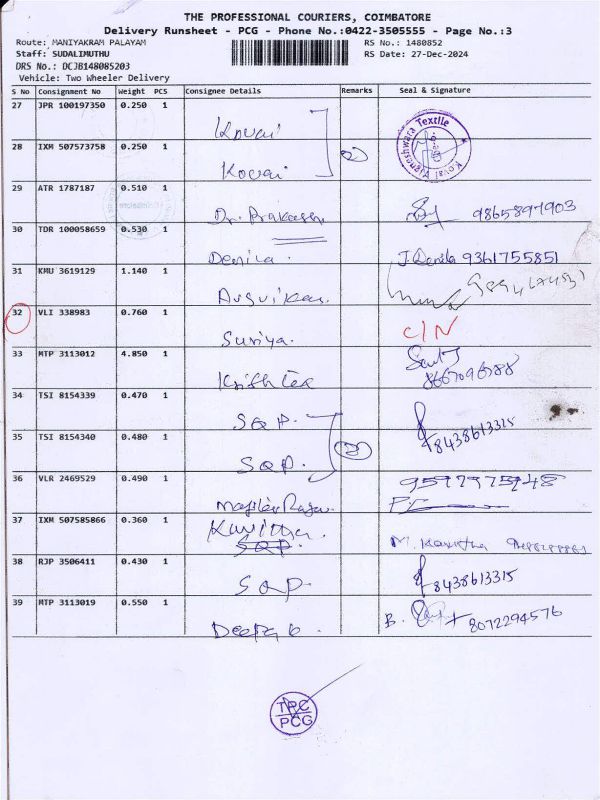 THE PROFESSIONAL COURIERS, COIMBATORE
Delivery Runsheet - PCG - Phone No.:0422-3505555 - Page No.:3
Route: MANIYAKRAM PALAYAM RS No.: 1480852
Staff: SUDALIMUTHU RS Date: 27-Dec-2024
DRS No.: DCJB148085203
Vehicle: Two Wheeler Delivery
S No Consignment No Weight PCS Consignee Details Remarks Seal & Signature
27 JPR 100197350 0.250 1 Kovai
Textile
28 IXM 507573758 0.250 1 Kovai 2
29 ATR 1787187 0.510 1 Dr. Prakash 9865897903
30 TDR 100058659 0.530 1 Denila J. Denila 9361755851
31 KMU 3619129 1.140 1
32 VLI 338983 0.760 1 Suriya. C/N
33 MTP 3113012 4.850 1 Krish Tex
34 TSI 8154339 0.470 1 SQP. 8438613315
35 TSI 8154340 0.480 1 SQP.
36 VLR 2469529 0.490 1
37 IXM 507585866 0.360 1 Kavitha. M. Kavitha
SQP.
38 RJP 3506411 0.430 1 SQP. 8438613315
39 MTP 3113019 0.550 1 B. 8072294576
TPC
PCG